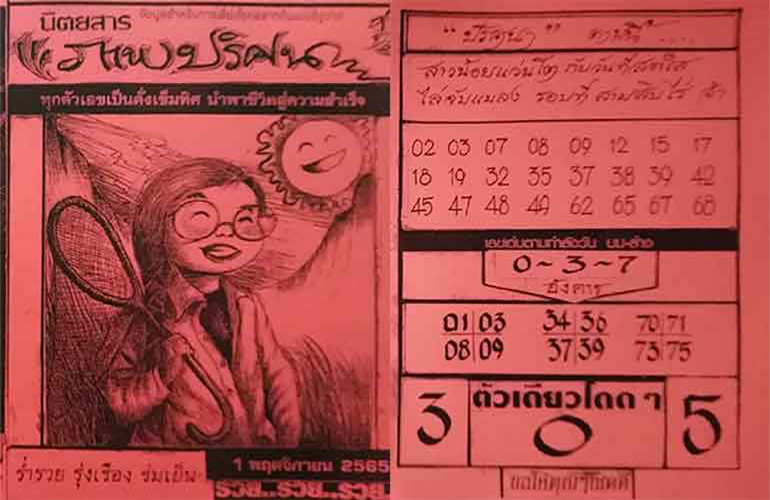 นิตยสาร
ภาพปริศนา
ทุกตัวเลขเป็นดั่งเข็มทิศ นำพาชีวิตสู่ความสำเร็จ
ร่ำรวย รุ่งเรือง ร่มเย็น
1 พฤศจิกายน 2565
รวย..รวย..รวย
"ปริศนา" ภาพนี้ ....
สาวน้อยแว่นโต กับวันที่สดใส
ไล่จับแมลง รอบที่ สามสิบไร่ จ้า
02 03 07 08 09 12 15 17
18 19 32 35 37 38 39 42
45 47 48 49 62 65 67 68
เลขเด่นตามกำลังวัน บน-ล่าง
0~3~7
อังคาร
01 03 34 36 70 71
08 09 37 39 73 75
ตัวเดียวโดด ๆ
3 0 5
ขอให้คุณโชคดี